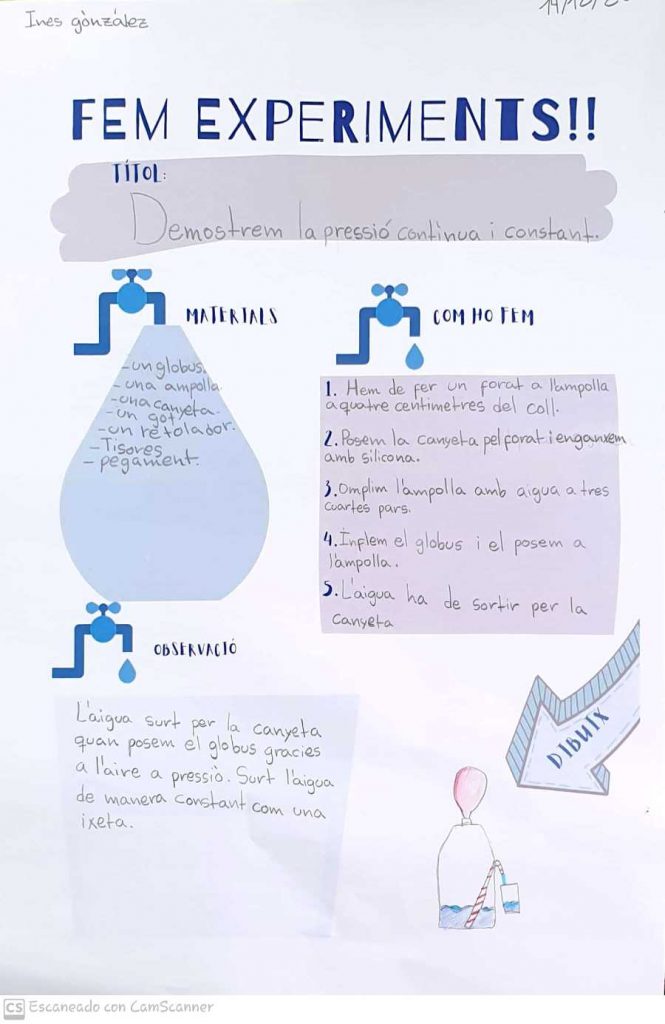 Ines gònzález
FEM EXPERIMENTS!!
TÍTOL:
Demostrem la pressió continua i constant.
MATERIALS
-un globus.
-una ampolla.
-una canyeta.
-un got.
-un retolador.
-Tisores
-pegament.
COM HO FEM
1. Hem de fer un forat a l'ampolla
a quatre centimetres del coll.
2. Posem la canyeta pel forat i enganxem
amb silicona.
3. Omplim l'ampolla amb aigua a tres
cuartes pars.
4. Inplem el globus i el posem a
l'ampolla.
5. L'aigua ha de sortir per la
canyeta
OBSERVACIÓ
L'aigua surt per la canyeta
quan posem el globus gracies
a l'aire a pressiò. Surt l'aigua
de manera constant com una
ixeta.
DIBUIX
CS Escaneado con CamScanner